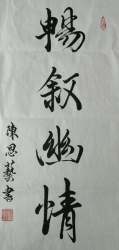 暢叙幽情
陳思藝書